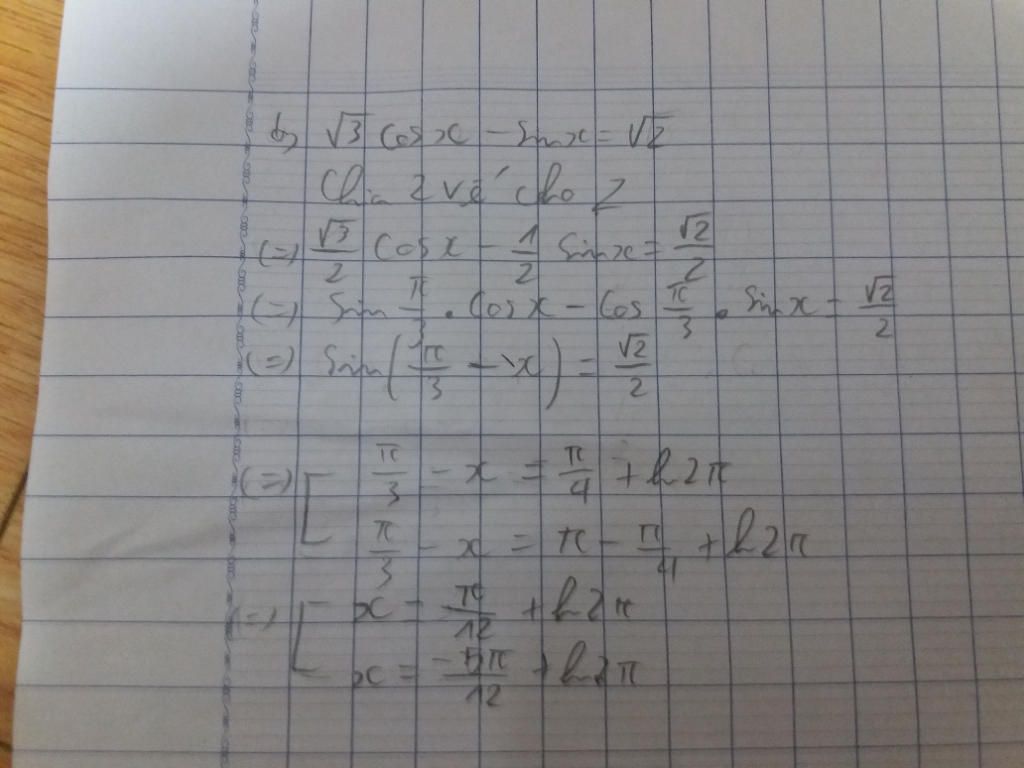 b, √3 cos x - sin x = √2
Chia 2 vế cho 2
(=) √3/2 cos x - 1/2 sin x = √2/2
(=) sin π/3 . cos x - cos π/3 . sin x = √2/2
(=) sin(π/3 - x) = √2/2
(=) [ π/3 - x = π/4 + k2π
π/3 - x = π - π/4 + k2π
(=) [ x = π/12 + k2π
x = -5π/12 + k2π